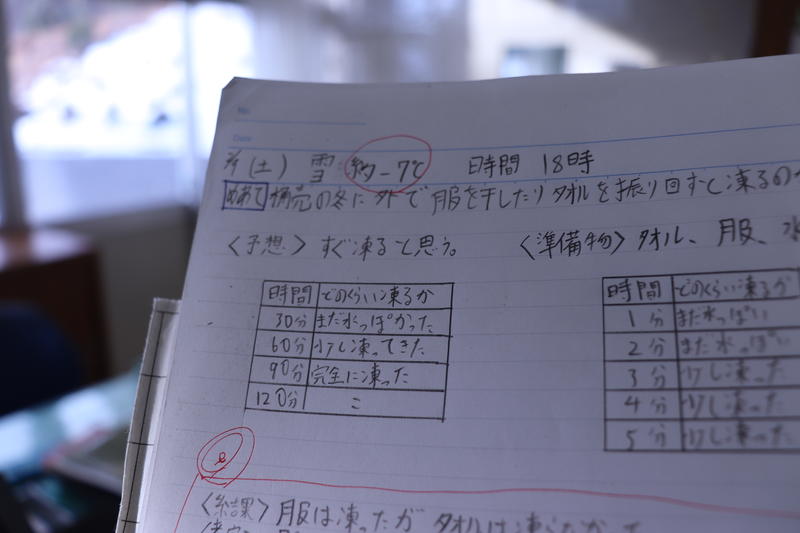 No.
Date
2/1(土) 雪 約-7℃ 時間 18時
めあて 桶売の冬に外で服を干したりタオルを振り回すと凍るのか
〈予想〉すぐ凍ると思う。 〈準備物〉タオル、服、水
時間 どのくらい凍るか
30分 まだ水っぽかった
60分 少し凍ってきた
90分 完全に凍った
120分 〃
時間 どのくらい凍るか
1分 まだ水っぽい
2分 まだ水っぽい
3分 少し凍った
4分 少し凍った
5分 少し凍った
〈結課〉服は凍ったがタオルは凍らなかった